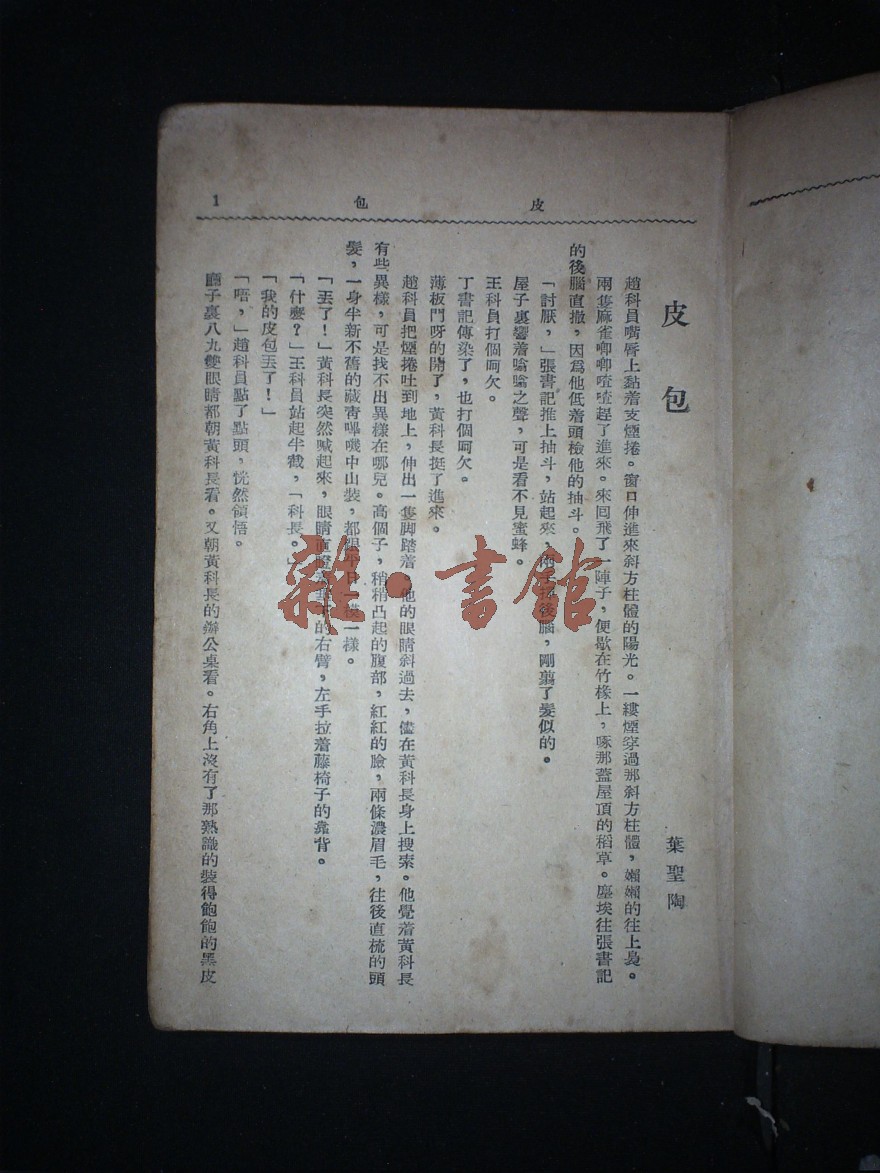 皮包
1
皮包
葉聖陶
趙科員嘴唇上黏着支煙捲。窗口伸進來斜方柱體的陽光。一縷煙穿過那斜方柱體，嬾嬾的往上裊。
兩隻麻雀唧唧喳喳趕了進來。來囘飛了一陣子，便歇在竹椽上，啄那蓋屋頂的稻草。塵埃往張書記
的後腦直撤，因爲他低着頭檢他的抽斗。
「討厭，」張書記推上抽斗，站起來，後腦，剛翦了髮似的。
屋子裏響着嗡嗡之聲，可是看不見蜜蜂。
王科員打個呵欠。
丁書記傳染了，也打個呵欠。
薄板門呀的開了，黃科長挺了進來。
趙科員把煙捲吐到地上，伸出一隻脚踏着。他的眼睛斜過去，儘在黃科長身上搜索。他覺着黃科長
有些異樣，可是找不出異樣在哪兒。高個子，稍稍凸起的腹部，紅紅的臉，兩條濃眉毛，往後直梳的頭
髮，一身半新不舊的藏靑嗶嘰中山裝，都一樣。
「丟了！」黃科長突然喊起來，眼睛直的右臂，左手拉着藤椅子的靠背。
「什麼？」王科員站起半截，「科長。」
「我的皮包丟了！」
「唔，」趙科員點了點頭，恍然領悟。
廳子裏八九雙眼睛都朝黃科長看。又朝黃科長的辦公桌看。右角上沒有了那熟識的裝得飽飽的黑皮
雜·書館